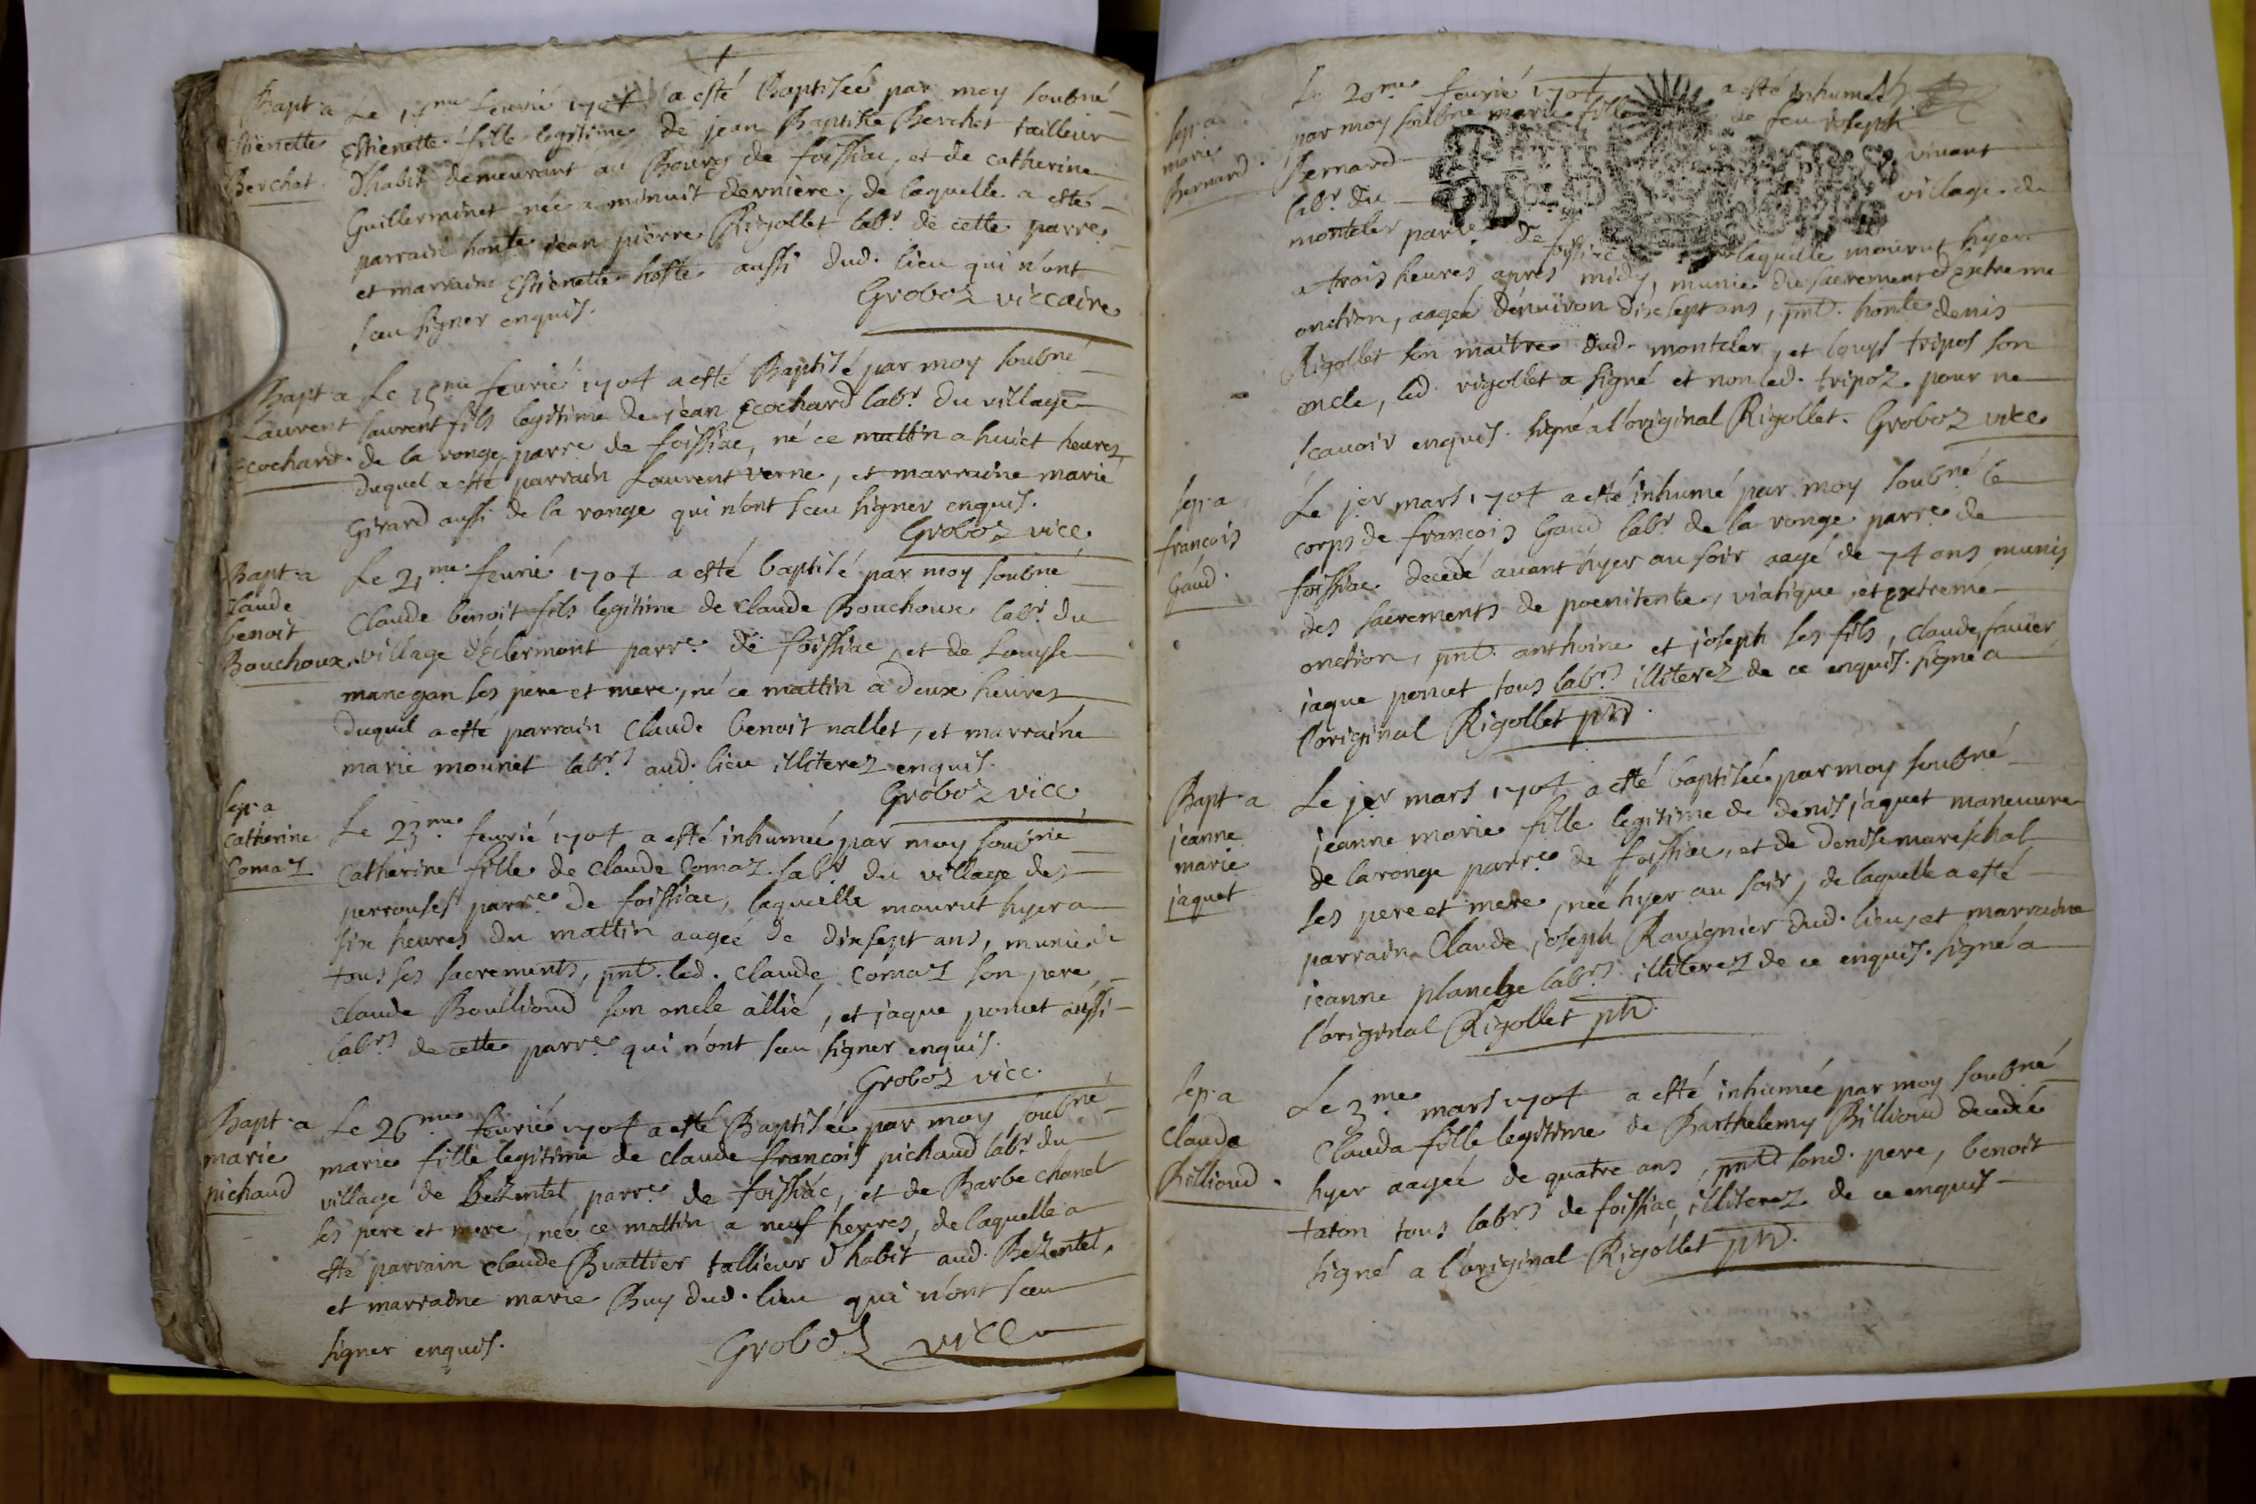 Bapt.a
Estienette
Berchet.
Le 15me feurié 1704 a esté Baptisée par moy soubné
Estienette fille legitime de jean Baptiste Berchet tailleur
d'habit demeurant au Bourg de foissiac, et de catherine
Guilleminet née a minuit derniere, de laquelle a esté
parrain honle jean pierre Rigollet labr. de cette parre.
et marraine Estienette hoste aussi dud. lieu qui n'ont
sceu signer enquis.
Groboz viccaire
Bapt.a
Laurent
Ecochard.
Le 15me feurié 1704 a esté Baptisé par moy soubné
laurent fils legitime de jean Ecochard labr. du village
de la ronge parre de foissiac, né ce mattin a huict heures
duquel a esté parrain Laurent verne, et marraine marie
Girard aussi de la ronge qui n'ont sceu signer enquis.
Groboz vicc.
Bapt.a
Claude
benoit
Bouchoux
Le 21me feurié 1704 a esté baptisé par moy soubné
Claude benoit fils legitime de Claude Bouchoux labr. du
village d'Eclermont parre. de foissiac, et de Louyse
manegon ses pere et mere, né ce mattin a deux heures
duquel a esté parrain Claude benoit nallet, et marraine
marie mounet labrs aud. lieu illiterez enquis.
Groboz vicc
Sep.a
Catherine
Comaz
Le 23me. feurié 1704 a esté inhumée par moy soubné
Catherine fille de Claude Comaz labr. du village des
perrouses parre de foissiac, laquelle mourut hyer a
six heures du mattin aagée de dixsept ans, munie de
tous ses sacrements, pnt. led. Claude Comaz son pere,
Claude Boullioud son oncle allié, et jaque poncet aussi
labrs de cette parre. qui n'ont sceu signer enquis.
Groboz vicc.
Bapt.a
marie
pichaud
Le 26me. feurié 1704 a esté Baptisée par moy soubné
marie fille legitime de claude françois pichaud labr. du
village de Bezentet parre. de foissiac, et de Barbe chanel
ses pere et mere, née ce mattin a neuf heures, de laquelle a
esté parrain claude Buattier tallieur d'habit aud. Bezentet,
et marraine marie Buy dud. lieu qui n'ont sceu
signer enquis.
Groboz vicc
Sep.a
marie
Bernard.
Le 28me feurié 1704 a esté inhumée
par moy soubné marie fille de feu joseph
Bernard vivant
labr. du village de
monteler parre de foissiac laquelle mourut hyer
a trois heures apres midy, munie du sacrement d'extreme
onction, aagée d'enuiron dixsept ans, pnt. honle denis
Rigollet son maitre dud. monteler, et louys tripos son
oncle, led. rigollet a signé et non led. tripoz pour ne
scauoir enquis. signé a l'original Rigollet. Groboz vicc
Sep.a
françois
Gaud.
Le jer mars 1704 a esté inhumé par moy soubné le
corps de françois Gaud labr. de la ronge parre. de
foissiac decedé auant hyer au soir aagé de 74 ans munis
des sacrements de poenitente, viatique, et extreme
onction, pnt. anthoine et joseph ses fils, Claude fauier
jaque poncet tous labrs. illiterez de ce enquis. signé a
l'original Rigollet ptr.
Bapt.a
jeanne
marie
jaquet
Le jer mars 1704 a esté baptisée par moy soubné
jeanne marie fille legitime de denis jaquet maneuure
de la ronge parre. de foissiac, et de denise mareschal
ses pere et mere, née hyer au soir, de laquelle a esté
parrain Claude joseph Rauignier dud. lieu, et marraine
jeanne planche labrs. illiterez de ce enquis. signé a
l'original Rigollet ptr.
Sep.a
Clauda
Billioud.
Le 3me mars 1704 a esté inhumée par moy soubné
Clauda fille legitime de Barthelemy Billioud decedée
hyer aagée de quatre ans, pnt. sond. pere, benoit
taton tous labrs de foissiac, illiterez de ce enquis
signé a l'original Rigollet ptr.